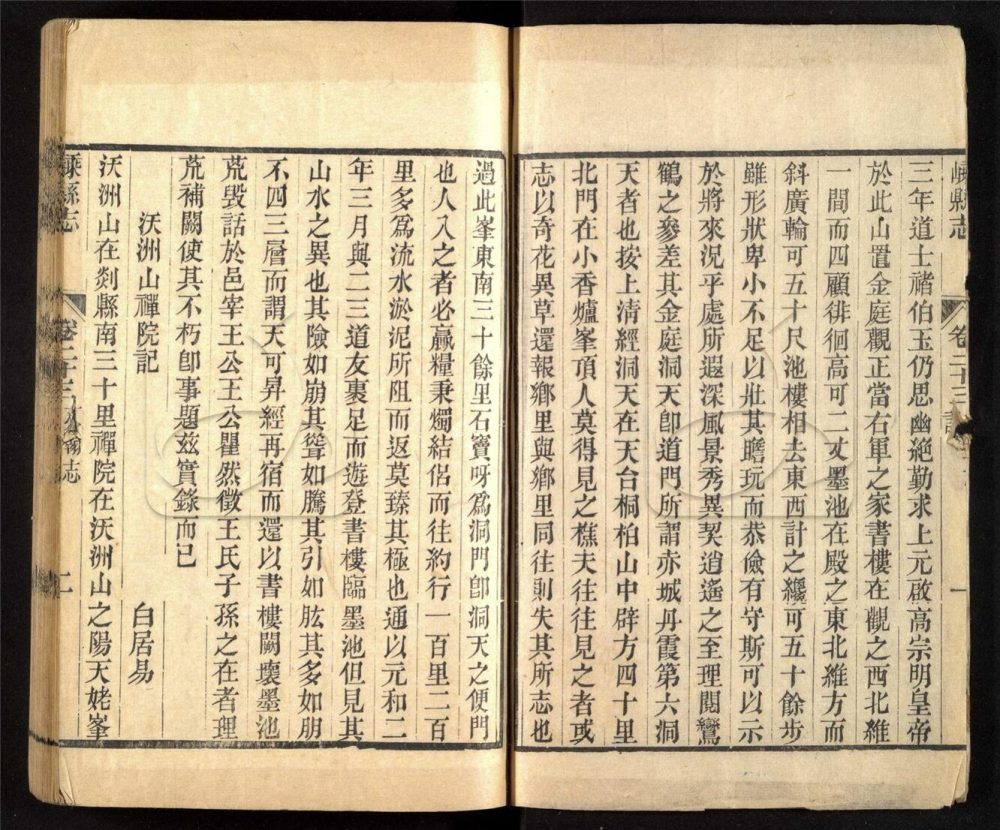 嵊縣志 卷二十三 一
三年道士禇伯玉仍思幽絶勤求上元啟高宗明皇帝
於此山置金庭觀正當右軍之家書樓在觀之西北維
一間而四顧徘徊高可二丈墨池在殿之東北維方而
斜廣輪可五十尺池樓相去東西計之纔可五十餘步
雖形狀卑小不足以壯其瞻玩而恭儉有守斯可以示
於將來況乎處所遐深風景秀異契逍遙之至理閲鸞
鶴之參差其金庭洞天卽道門所謂赤城丹霞第六洞
天者也按上清經洞天在天台桐柏山中辟方四十里
北門在小香爐峯頂人莫得見之樵夫往往見之者或
志以奇花異草還報鄉里與鄉里同往則失其所志也
過此峯東南三十餘里石竇呀爲洞門卽洞天之便門
也人入之者必贏糧秉燭結侶而往約行一百里二百
里多爲流水淤泥所阻而返莫臻其極也通以元和二
年三月與二三道友裹足而遊登書樓臨墨池但見其
山水之異也其險如崩其聳如騰其引如肱其多如朋
不四三層而謂天可昇經再宿而還以書樓闕壞墨池
荒毀話於邑宰王公王公瞿然徵王氏子孫之在者理
荒補闕使其不朽卽事題兹實錄而已
沃洲山禪院記 白居易
沃洲山在剡縣南三十里禪院在沃洲山之陽天姥峯
嵊縣志 卷二十三 志 二